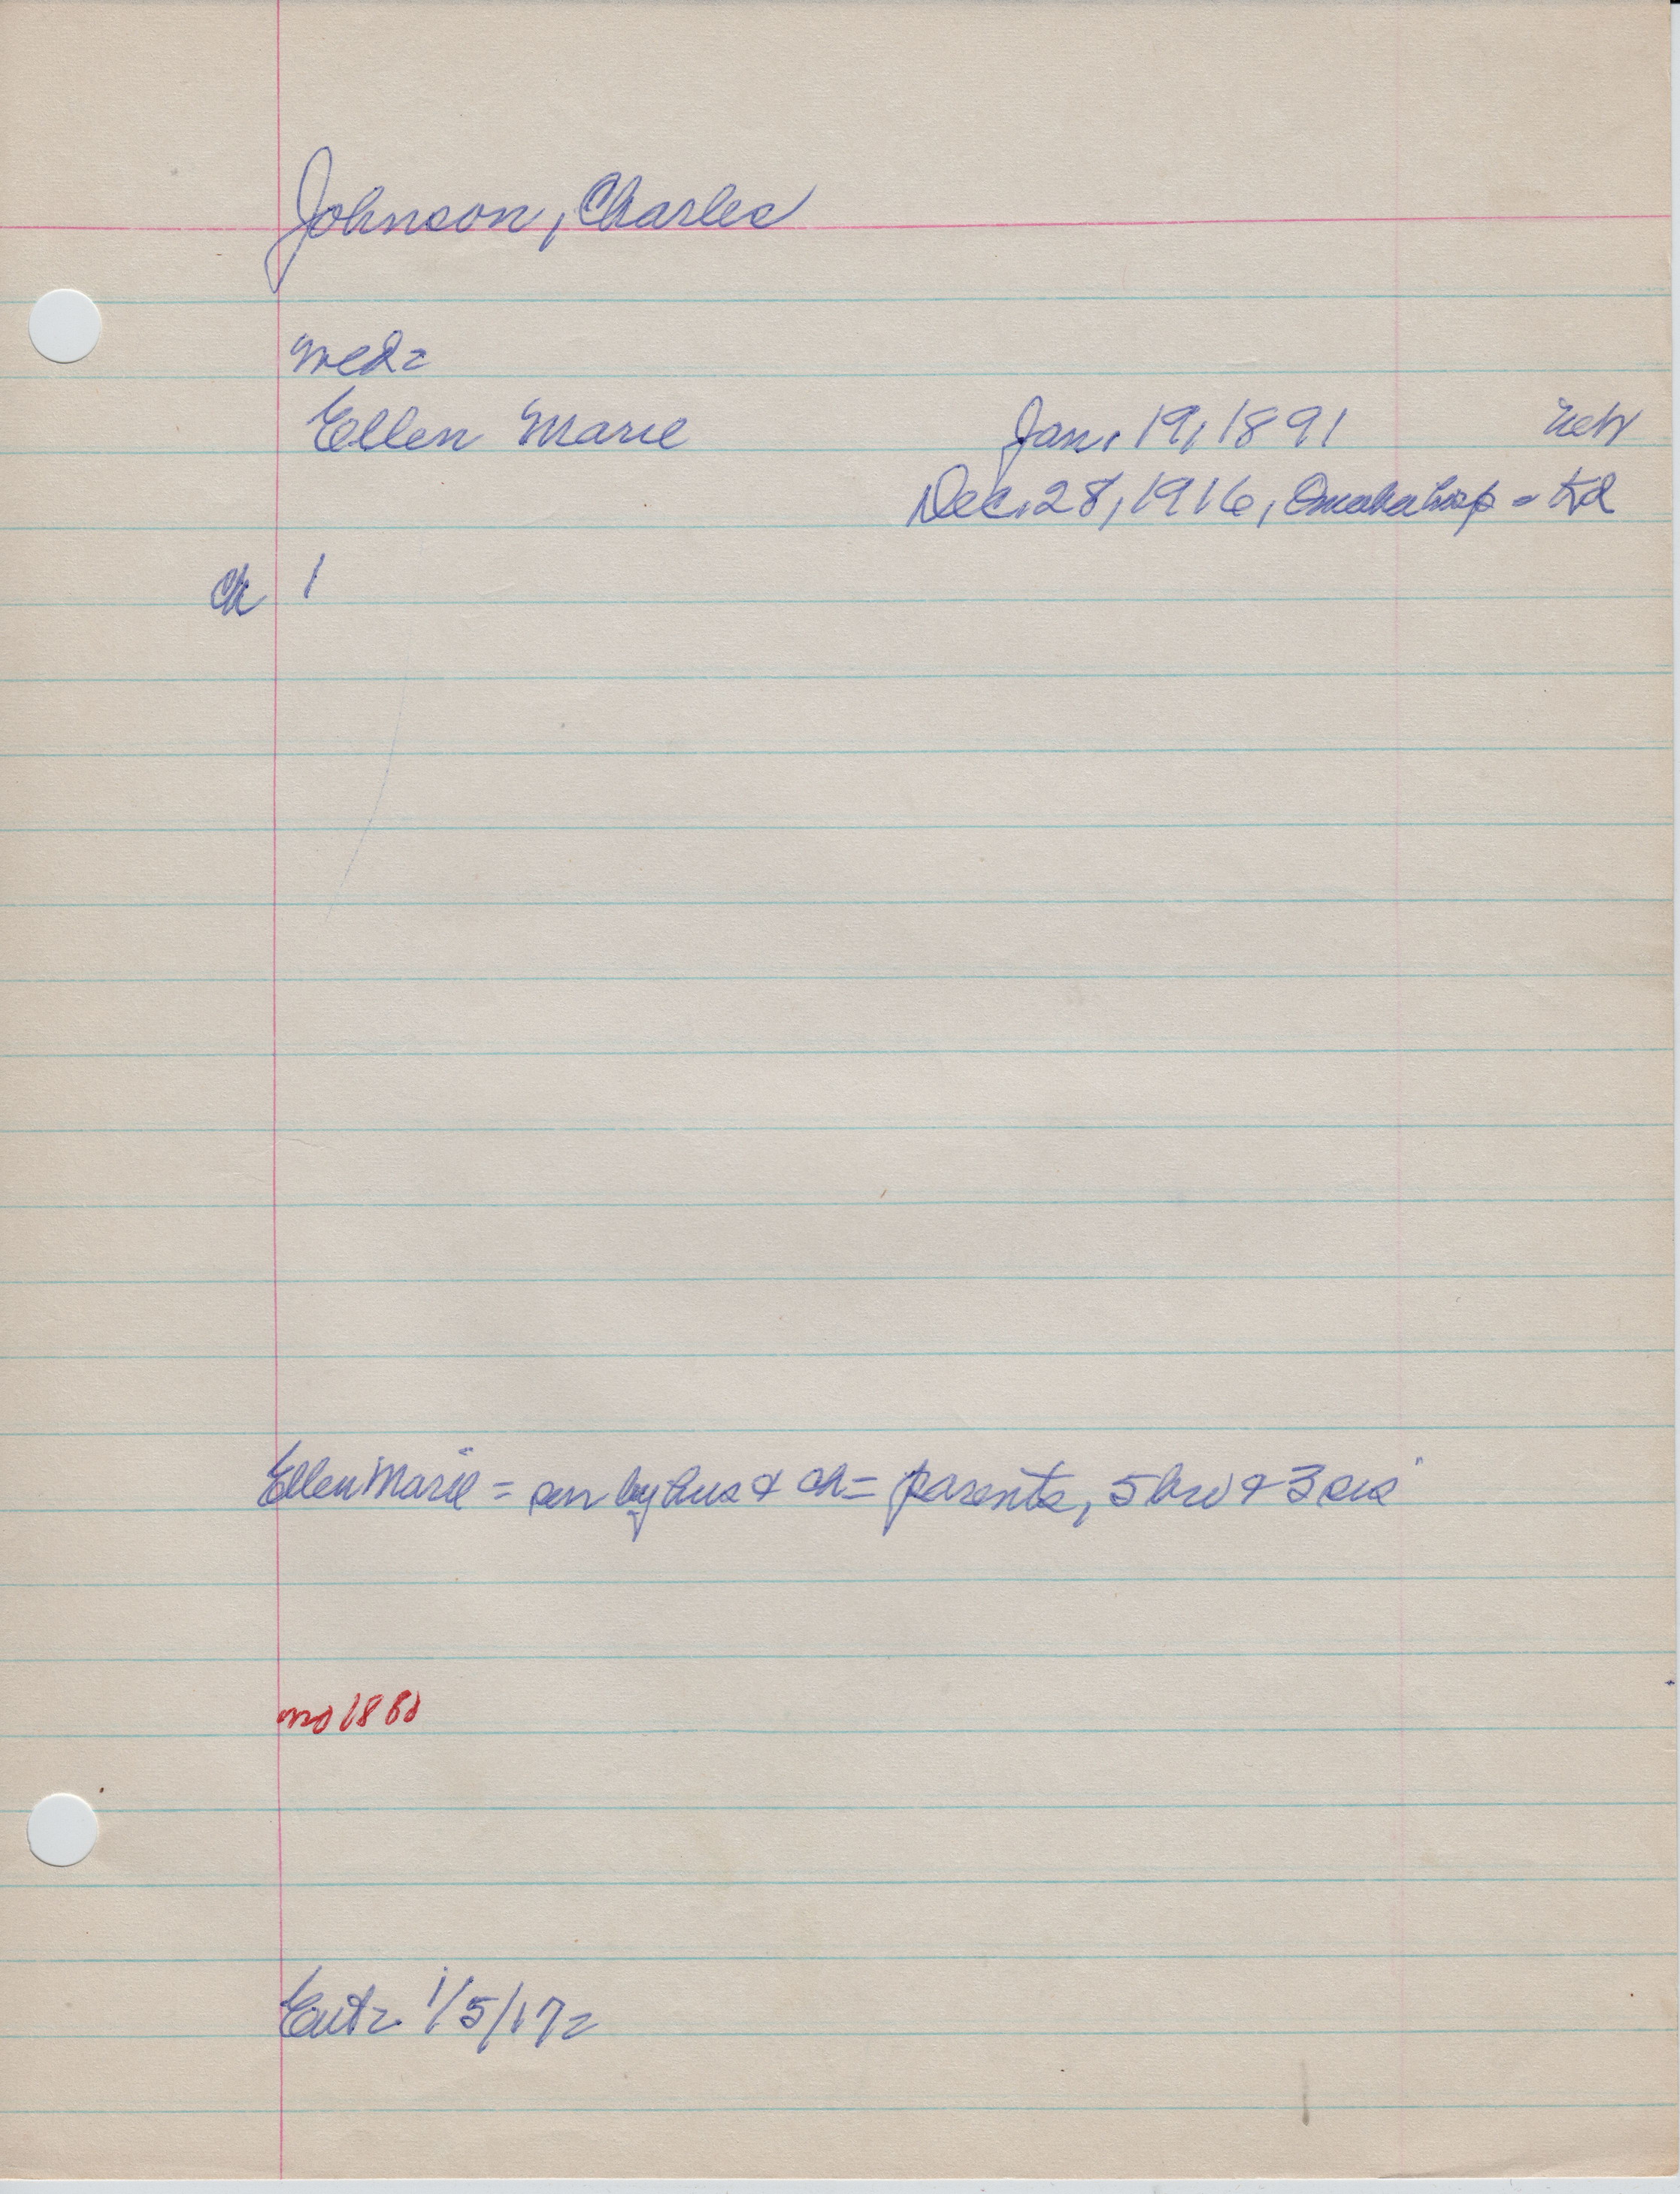 Johnson, Charles
med=
Ellen Marie Jan. 19, 1891 Neb
Dec. 28, 1916, Omaha hosp =
Ch 1
Ellen Marie = sur by hus & ch = parents, 5 bro & 3 sis
no 1880
1/5/17=